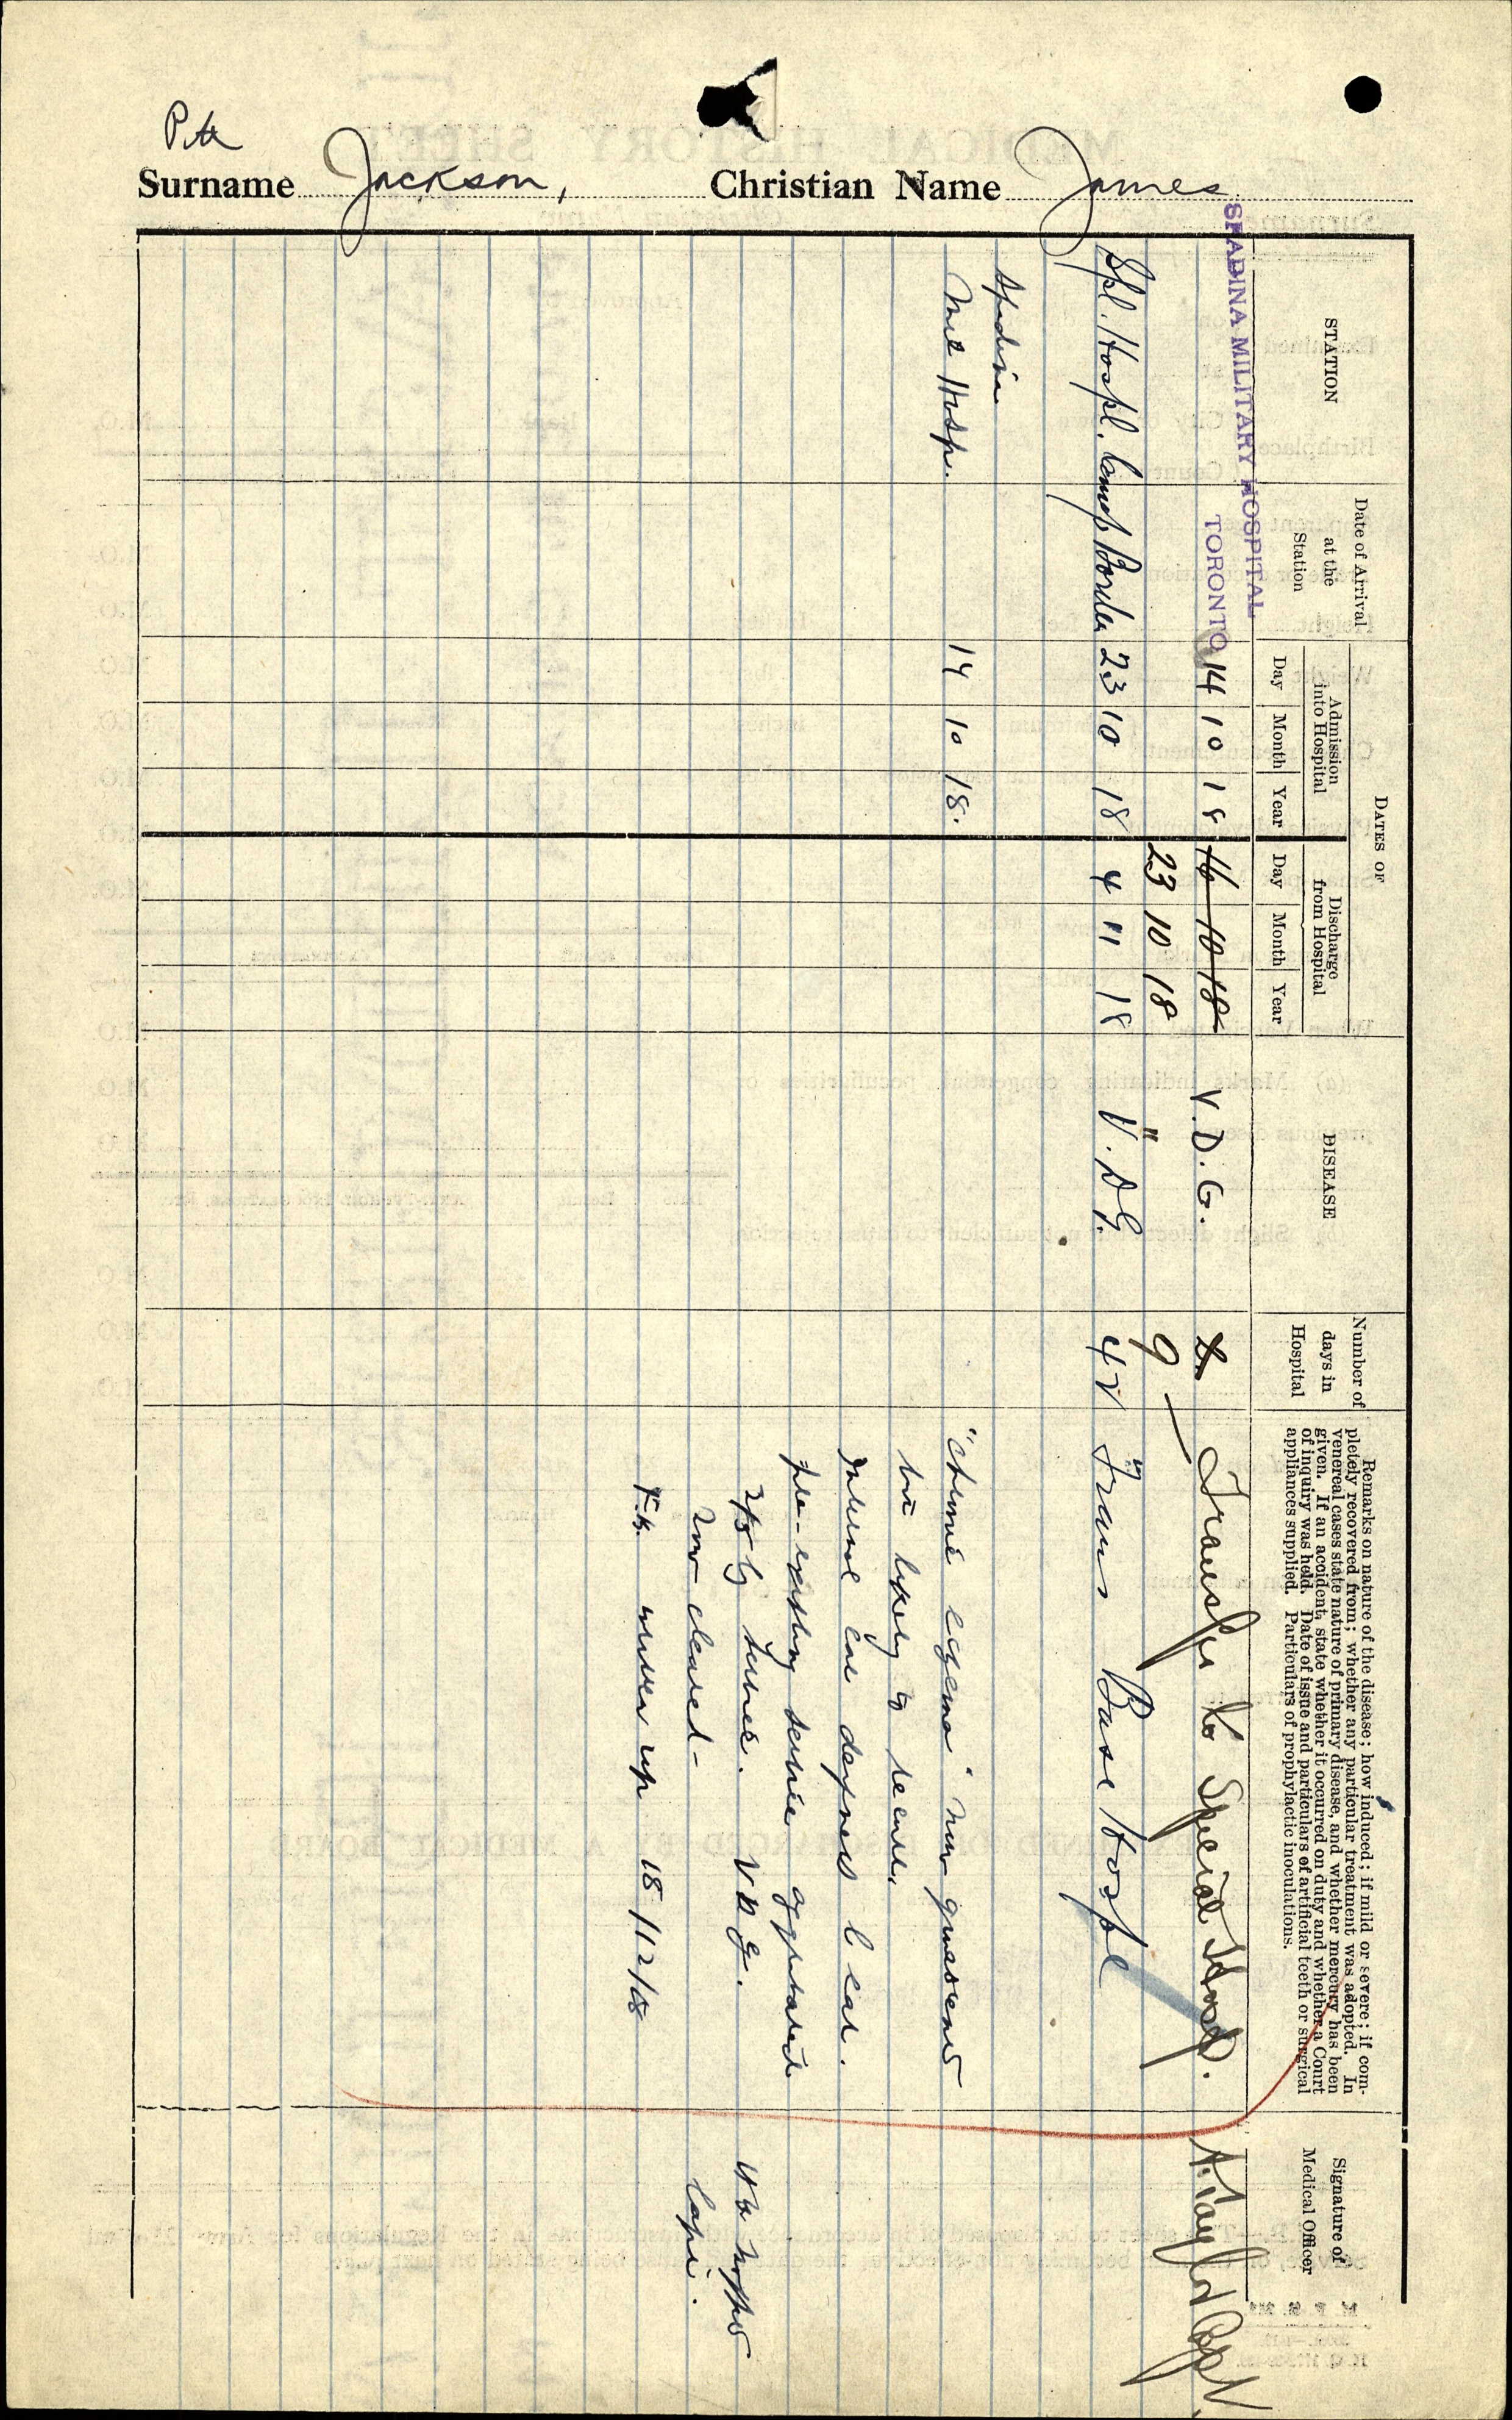 Pte
Surname Jackson, Christian Name James
STATION
Date of Arrival at the Station
DATES OF
Admission into Hospital
Discharge from Hospital
Day Month Year Day Month Year
DISEASE
Number of days in Hospital
Remarks on nature of the disease; how induced; if mild or severe; if com-
pletely recovered from; whether any particular treatment was adopted. In
venereal cases state nature of primary disease, and whether mercury has been
given. If an accident, state whether it occurred on duty and whether a Court
of inquiry was held. Date of issue and particulars of artificial teeth or surgical
appliances supplied. Particulars of prophylactic inoculations.
Signature of Medical Officer
SPADINA MILITARY HOSPITAL
TORONTO 14 10 18 16 10 18 V. D. G. Transfer to Special Hosp.
23 10 18 " 9 — "
Spl. Hospl. Camp Borden 23 10 18 4 11 18 V. D G. Trans Base Hospl
Spadina
Mil Hosp. 14 10 18. "Chronic eczema" now quiescent
but likely to recur.
Internal ear deafness l ear.
pre-existing service aggravated
by service. V D G.
now cleared-
18/12/18
Capt.